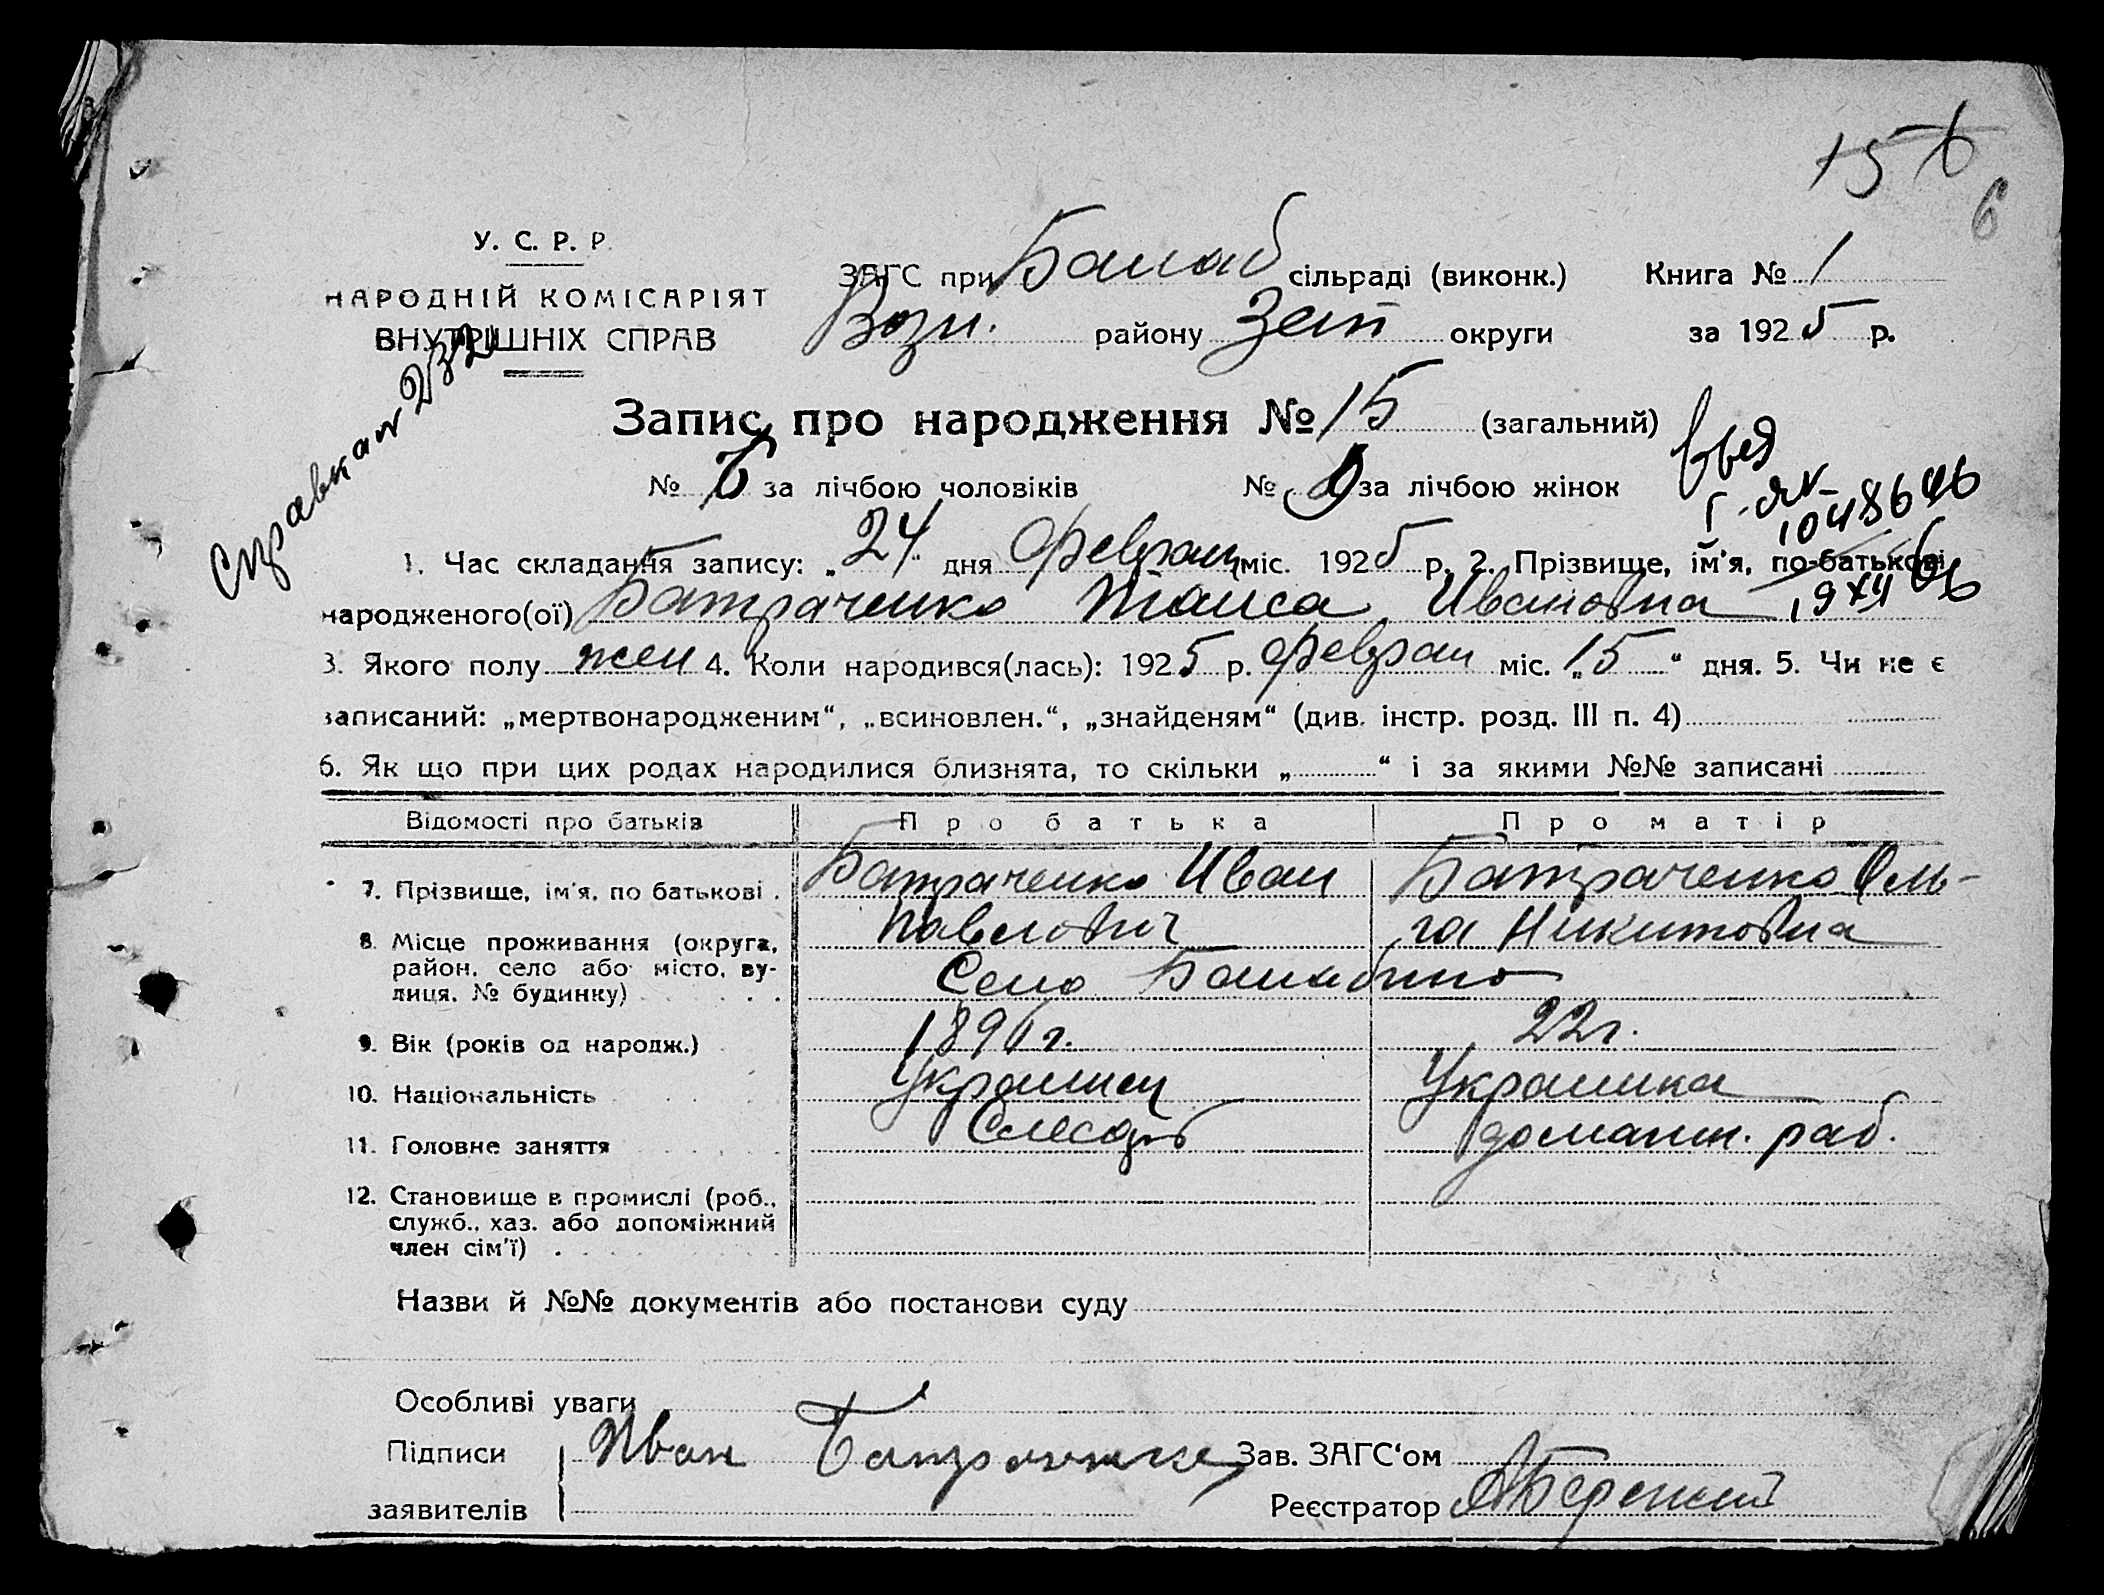 156
6
У. С. Р. Р.
НАРОДНІЙ КОМІСАРІЯТ
ВНУТРІШНІХ СПРАВ
ЗАГС при Балаб сільраді (виконк.) Книга № 1
Возн. району Зап округи за 1925 р.
Справка № 232
Запис про народження № 15 (загальний)
№ за лічбою чоловіків № 9 за лічбою жінок
1. Час складання запису: „24" дня Феврал міс. 1925 р. 2. Прізвище, ім'я, по-батькові
народженого(ої) Батраченко Таиса Ивановна
3. Якого полу жен 4. Коли народився(лась): 1925 р. Феврал міс. „15" дня. 5. Чи не є
записаний: „мертвонародженим", „всиновлен.", „знайденям" (див. інстр. розд. III п. 4)
6. Як що при цих родах народилися близнята, то скільки „ " і за якими №№ записані
Відомості про батьків Про батька Про матір
7. Прізвище, ім'я, по батькові . Батраченко Иван Павлович Батраченко Ольга Никитовна
8. Місце проживання (округа,
район, село або місто, ву-
лиця, № будинку) Село Балабино
9. Вік (років од народж.) 22г.
10. Національність Украинец Украинка
11. Головне заняття Слесарь домашн. раб.
12. Становище в промислі (роб.,
служб., хаз. або допоміжний
член сім'ї) .
Назви й №№ документів або постанови суду
Особливі уваги
Підписи Иван Батраченко Зав. ЗАГС'ом
заявителів Реєстратор